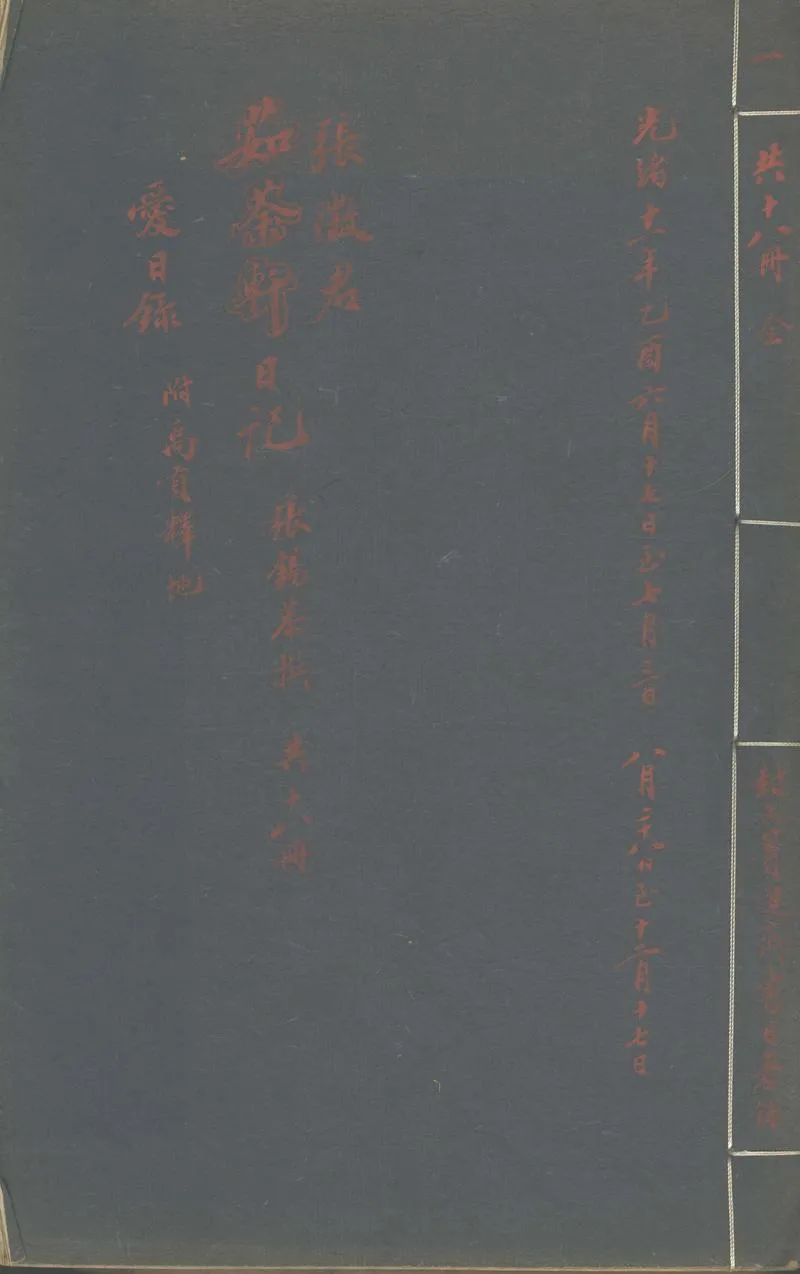 一
共十八冊 全
光緒十一年乙酉六月十七日至七月三日 八月二十八日至十二月十七日
張徵君
茹荼軒日記 張錫恭撰 共十八冊
愛日錄 附禹貢釋地